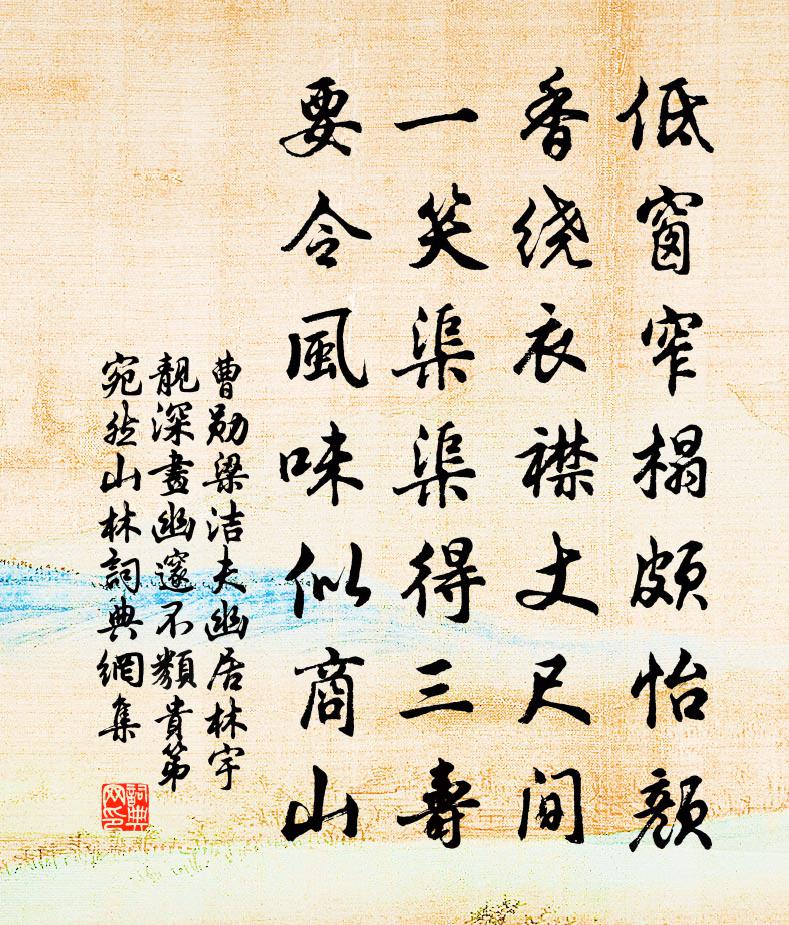 低窗窄榻颇怡颜
香绕衣襟丈尺间
一笑渠渠得三寿
要令風味似商山
曹勋梁洁夫幽居林宇
靓深晝幽邃不類貴第
宛然山林詞典網集
詞典網印